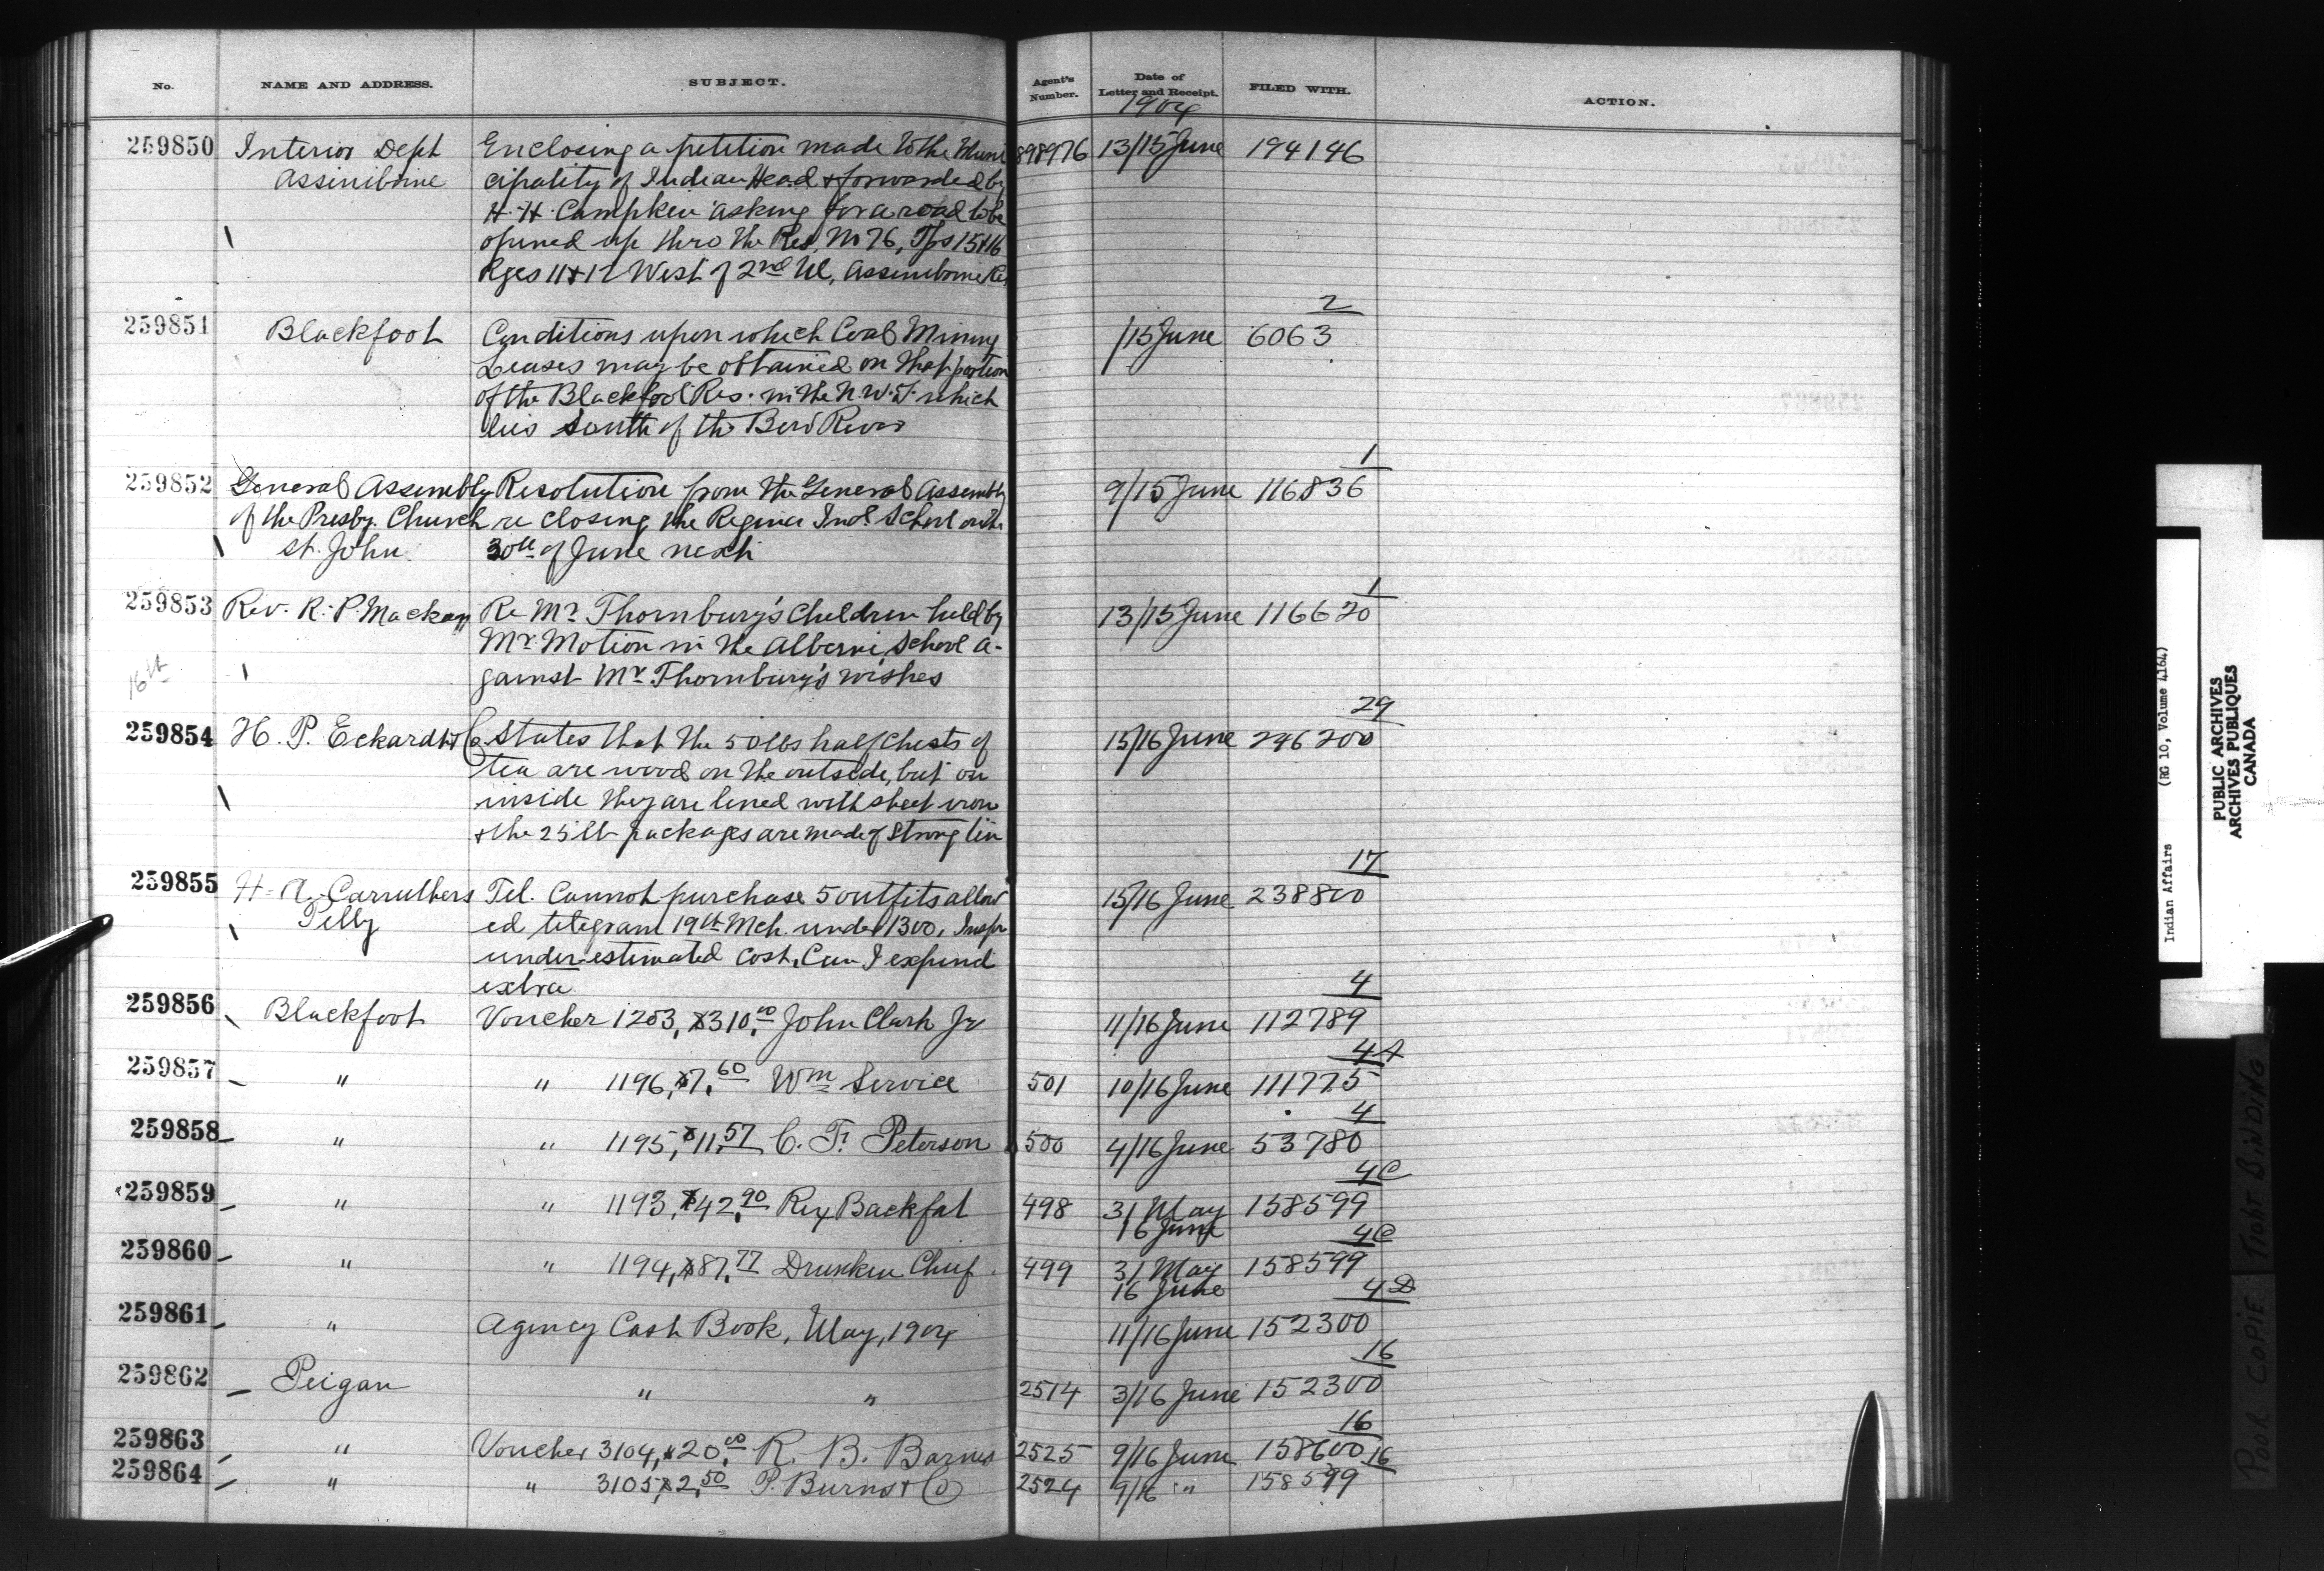 No. NAME AND ADDRESS. SUBJECT. Agent's Number. Date of Letter and Receipt. FILED WITH. ACTION.
1904
259850 Interior Dept Enclosing a petition made to the Muni 898976 13/15 June 194146
Assiniboine cipality of Indian Head & forwarded by
H. H. Campkin asking for a road to be
opened up thro the Res. No 76, Tps 15 & 16
Rges 11 & 12 West of 2nd M, Assiniboine Res
2
259851 Blackfoot Conditions upon which Coal Mining /15 June 6063
Leases may be obtained on that portion
of the Blackfoot Res. in the N.W.T. which
lies south of the Bow River
1
259852 General Assembly Resolution from the General Assembly 9/15 June 116836
of the Presby. Church re closing the Regina Ind. School on the
St. John 30th of June next
1
259853 Rev. R. P. Mackay Re Mr Thornbury's Children held by 13/15 June 116620
Mr Motion in the Alberni School a-
16th gainst Mr Thornbury's wishes
29
259854 H. P. Eckardt & Co States that the 50 lbs half chests of 15/16 June 246200
tea are wood on the outside, but on
inside they are lined with sheet iron
& the 25 lb packages are made of strong tin
17
259855 H. A. Carruthers Tel. Cannot purchase 5 outfits allow 15/16 June 238800
Pelly ed telegram 19th Mch. under 1300. Inspr
under estimated cost. Can I expend
extra
4
259856 Blackfoot Voucher 1203, $310.00 John Clark Jr 11/16 June 112789
4A
259857 " " 1196, $7.60 Wm Service 501 10/16 June 111775
4
259858 " " 1195, $11.57 C. F. Peterson 500 4/16 June 53780
4C
259859 " " 1193, $42.90 Rey Backfat 498 31 May 158599
16 June
4C
259860 " " 1194, $87.77 Drunken Chief 499 31 May 158599
16 June
4D
259861 " Agency Cash Book, May, 1904 11/16 June 152300
16
259862 Peigan " " 2514 3/16 June 152300
16
259863 " Voucher 3104, $20.00 R. B. Barnes 2525 9/16 June 158600
16
259864 " " 3105, $2.50 P. Burns & Co 2524 9/16 " 158599
Indian Affairs (RG 10, Volume 4164)
PUBLIC ARCHIVES
ARCHIVES PUBLIQUES
CANADA
POOR COPIE TIGHT BINDING